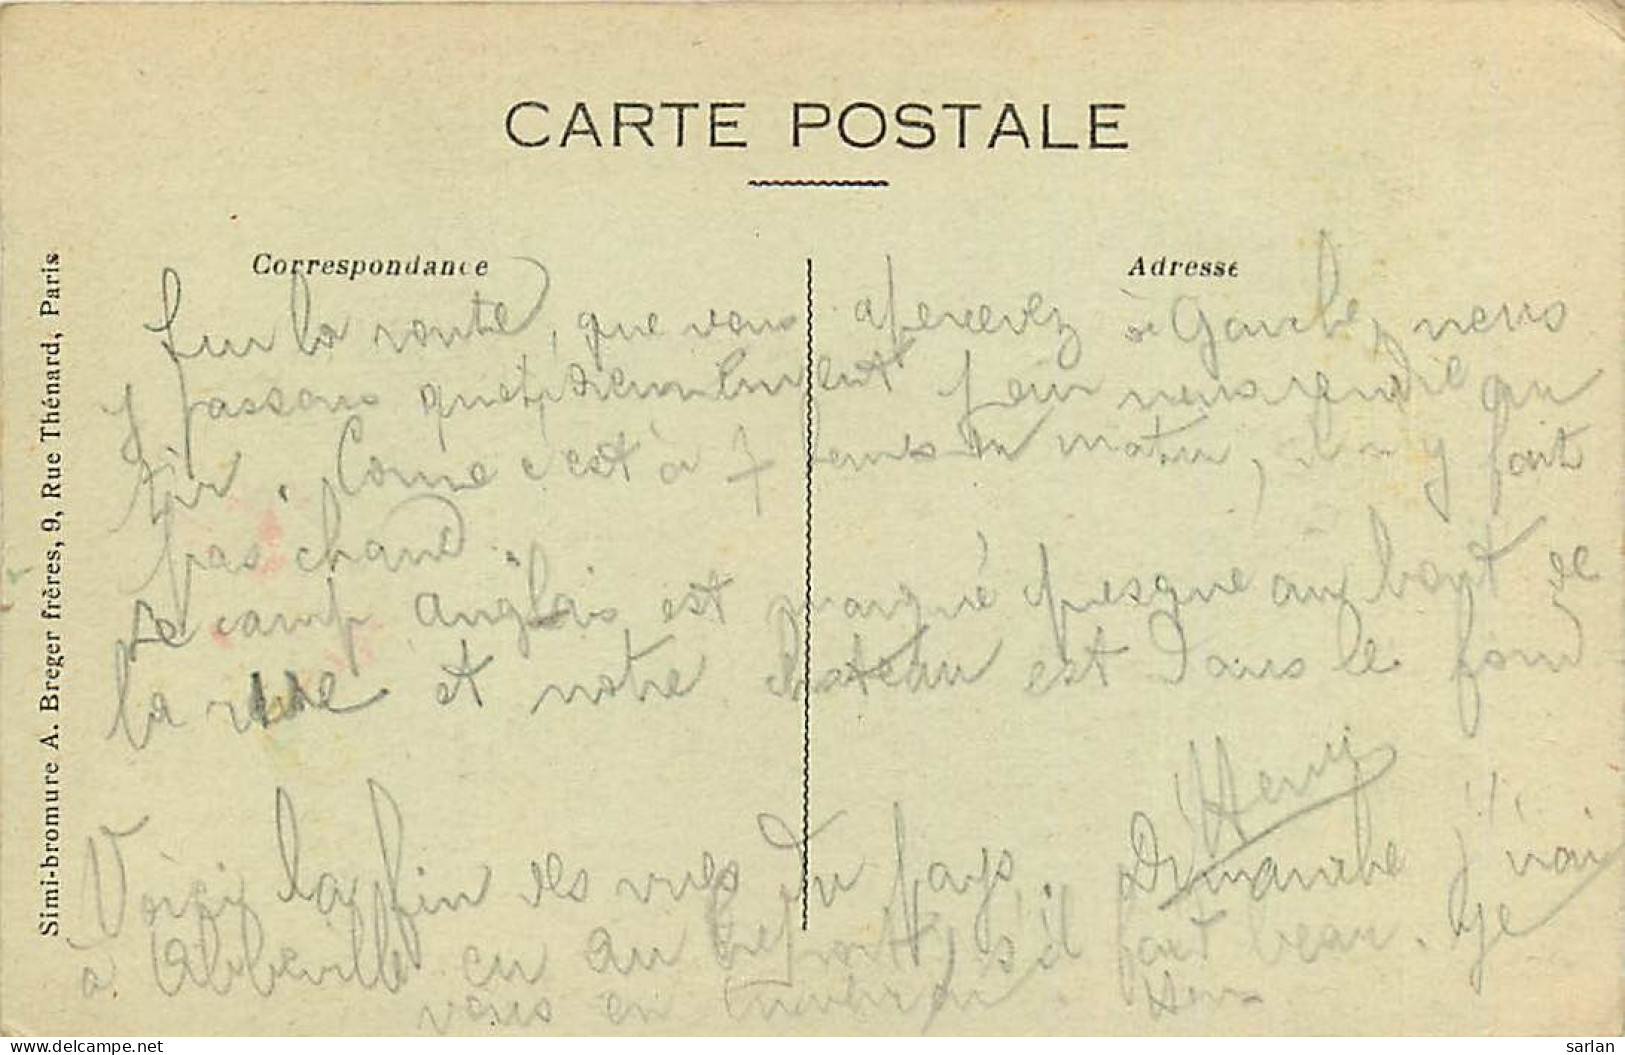 CARTE POSTALE
Correspondance
Adresse
Simi-bromure A. Breger frères, 9, Rue Thénard, Paris
Sur la route, que vous apercevez à Gauche, nous
y passons quotidiennement pour nous rendre au
tir. Come c'est à 7 heures du matin, il n'y fait
pas chaud.
Le camp anglais est marqué presque au bout de
la rue et notre chateau est dans le fond
Henry
Voici la fin des vues du pays. Dimanche j'irai
à Abbeville ou au Tréport, s'il fait beau. Je
vous en enverrai.
delcampe.net
sarlan